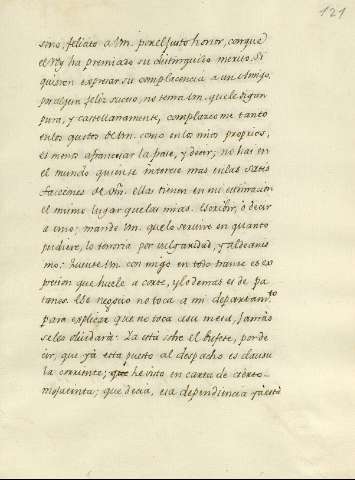 121
sino, felicito a Vm. por el justo honor, con que
el Rey ha premiado su distinguido merito. Si
quisieren expresar su complacencia a un Amigo,
por algun feliz suceso, no tema Vm. que le digan
pura, y castellanamente, complazcome tanto
en los gustos de Vm. como en los mios propios,
es menos afrancesar la frase, y decir; no hai en
el mundo quien se interese mas en las satis
facciones de Vm. ellas tienen en mi estimacion
el mismo lugar que las mias. Escribir, ò decir
a uno; mande Vm. que lo servire en quanto
pudiere, lo tendria por vulgaridad, y aldeanis
mo: Cuente Vm. conmigo en todo trance es ex
presion que huele a corte, y lo demas es de pa
tanes. Ese negocio no toca a mi departamto
para explicar que no toca a su mesa, jamàs
se les olvidarà: Ya està sobre el Bufete, por de
cir, que yà està puesto al despacho es clausu
la corriente; que he visto en carta de
que decia, esa dependiencia yà està